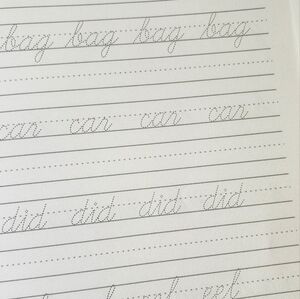 bag bag bag bag
car car car car
did did did did